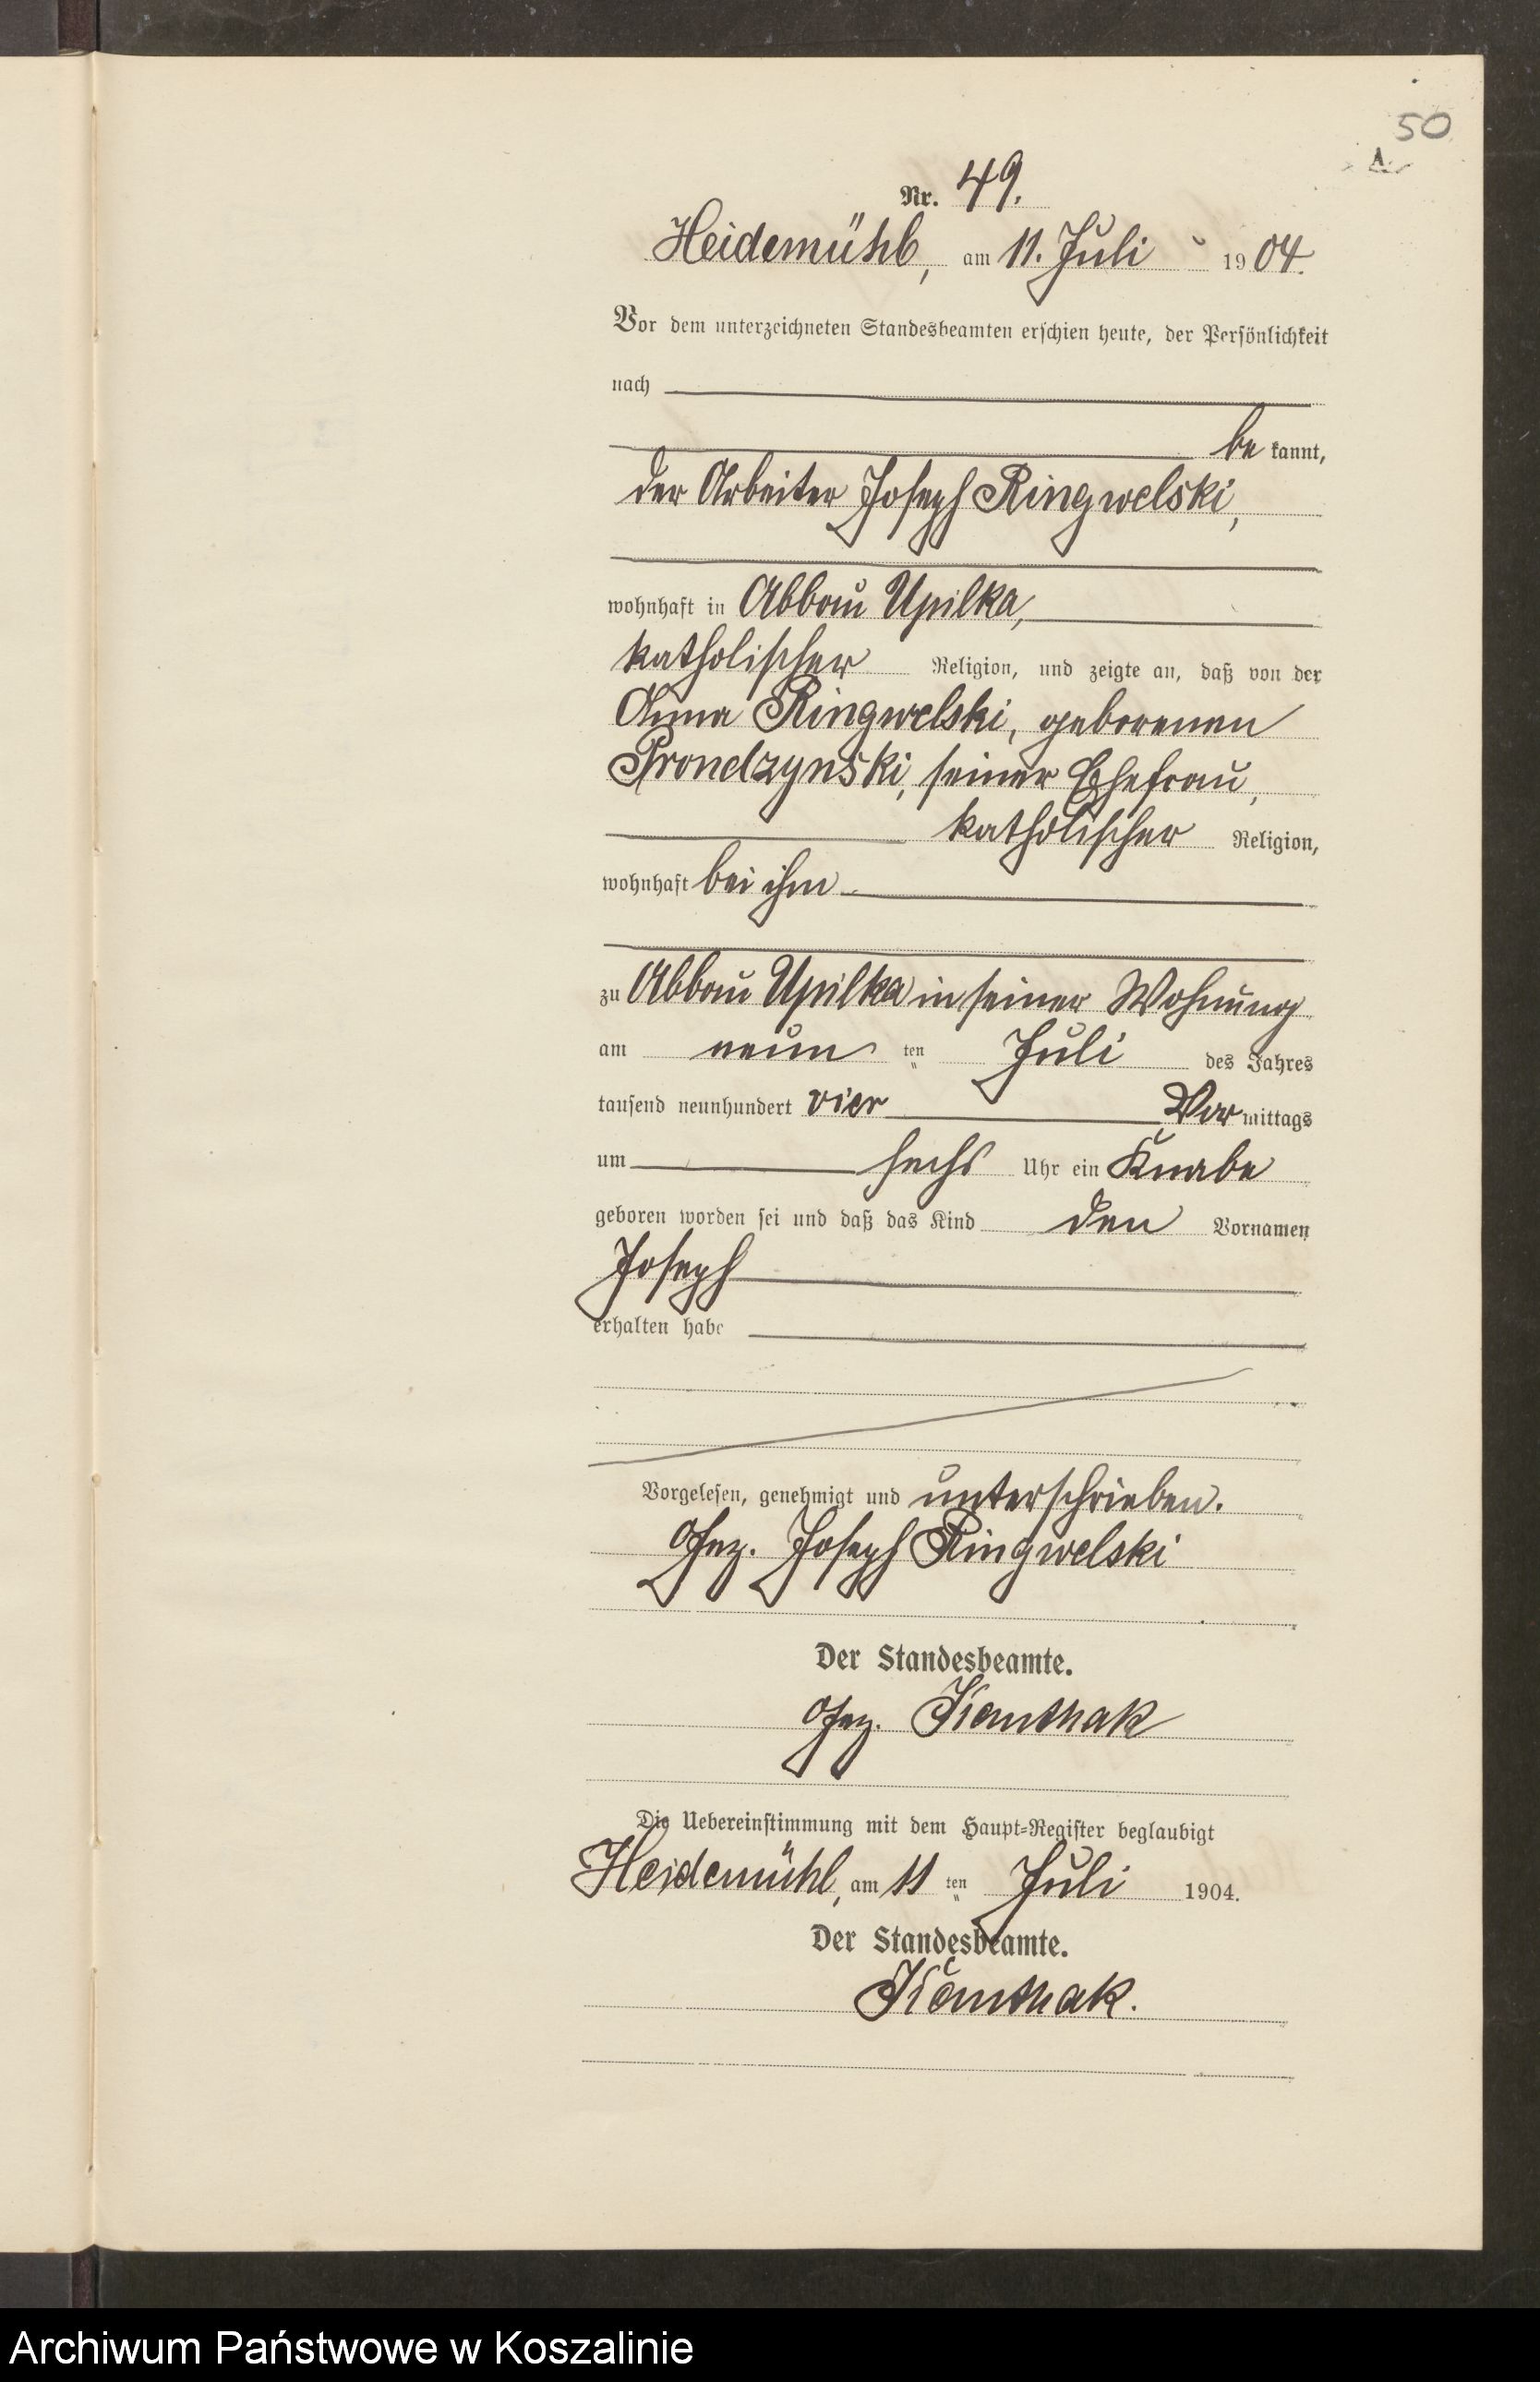 50
A.
Nr. 49.
Heidemühl, am 11. Juli 1904.
Vor dem unterzeichneten Standesbeamten erschien heute, der Persönlichkeit
nach
be kannt,
der Arbeiter Joseph Ringwelski,
wohnhaft in Abbau Upilka,
katholischer Religion, und zeigte an, daß von der
Anna Ringwelski, geborenen
Prondzynski, seiner Ehefrau,
katholischer Religion,
wohnhaft bei ihm
zu Abbau Upilka in seiner Wohnung
am neun ten Juli des Jahres
tausend neunhundert vier Vor mittags
um sechs Uhr ein Knabe
geboren worden sei und daß das Kind den Vornamen
Joseph
erhalten habe
Vorgelesen, genehmigt und unterschrieben.
Gez. Joseph Ringwelski
Der Standesbeamte.
Gez.
Die Uebereinstimmung mit dem Haupt-Register beglaubigt
Heidemühl, am 11 ten Juli 1904.
Der Standesbeamte.
Archiwum Państwowe w Koszalinie